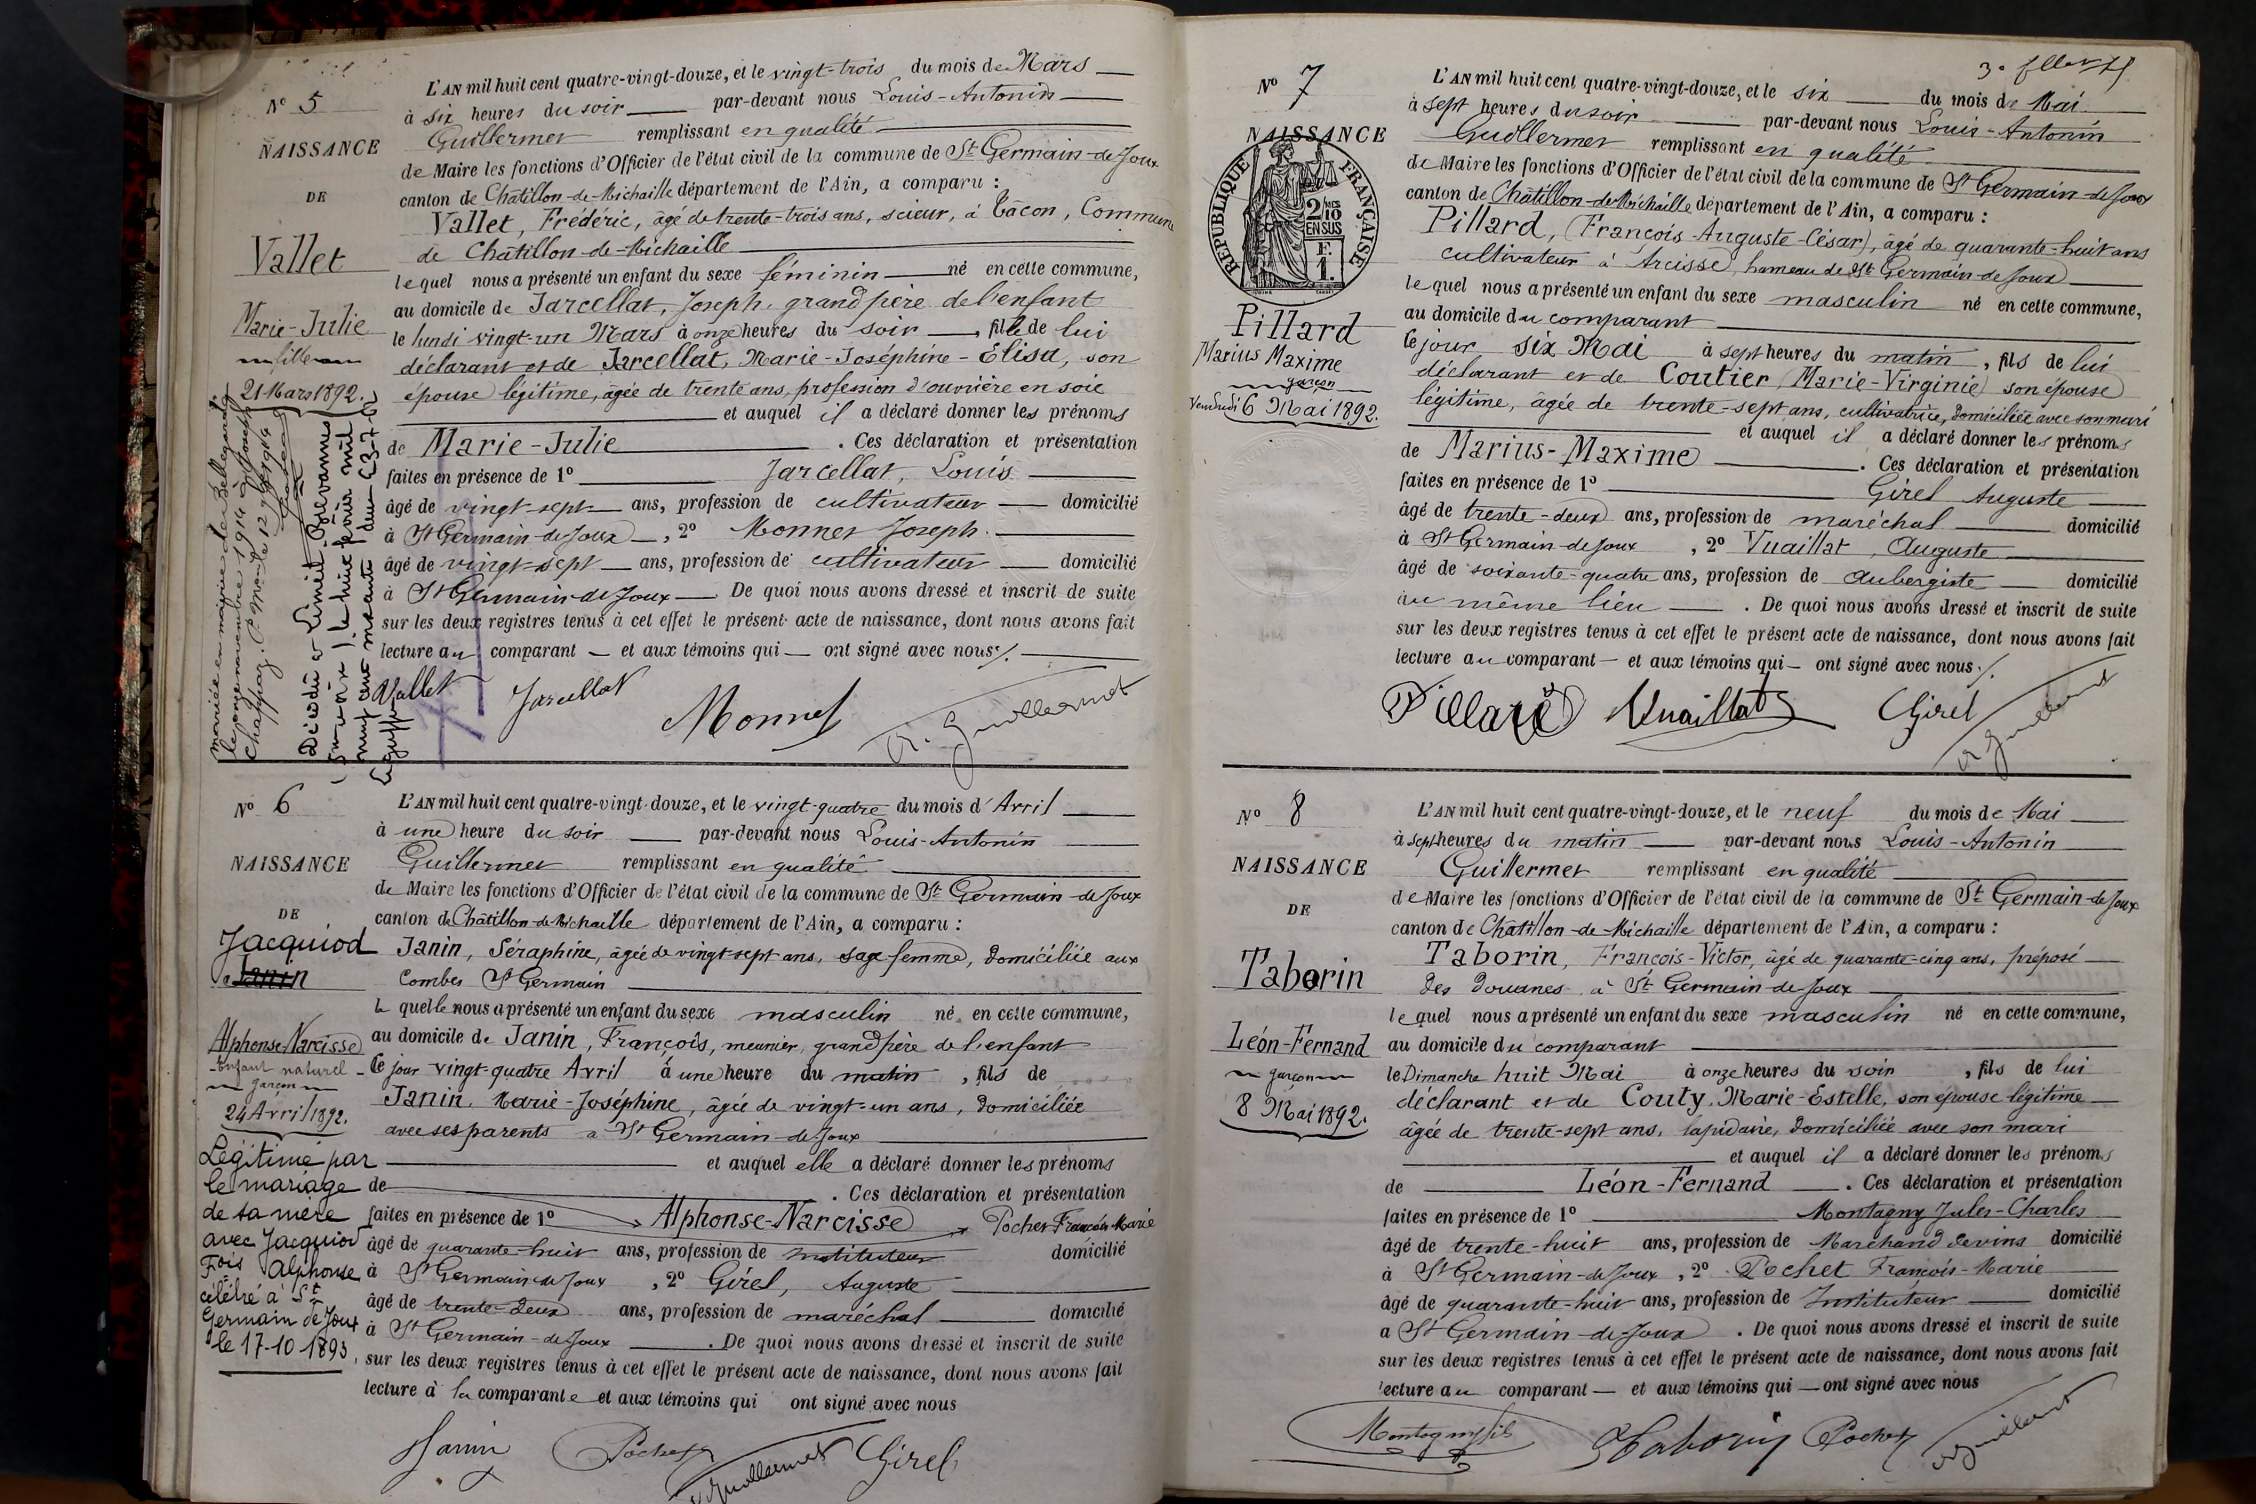 N° 5
NAISSANCE
DE
Vallet
Marie-Julie
fille
21 Mars 1892.
mariée en mairie de Bellegarde
le onze novembre 1914 à Joseph
Chappaz.
Décédée à Limeil-Brévannes
le huit février mil
neuf cent soixante deux
L'AN mil huit cent quatre-vingt-douze, et le vingt-trois du mois de Mars
à six heures du soir par-devant nous Louis-Antonin
Guillermet remplissant en qualité
de Maire les fonctions d'Officier de l'état civil de la commune de St Germain-de-Joux
canton de Châtillon-de-Michaille département de l'Ain, a comparu :
Vallet, Frédéric, âgé de trente-trois ans, scieur, à Tâcon, Commune
de Châtillon-de-Michaille
lequel nous a présenté un enfant du sexe féminin né en cette commune,
au domicile de Jarcellat, Joseph, grand père de l'enfant
le lundi vingt-un Mars à onze heures du soir, fille de lui
déclarant et de Jarcellat, Marie-Joséphine-Élisa, son
épouse légitime, âgée de trente ans, profession d'ouvrière en soie
et auquel il a déclaré donner les prénoms
de Marie-Julie. Ces déclaration et présentation
faites en présence de 1° Jarcellat, Louis
âgé de vingt-sept ans, profession de cultivateur domicilié
à St Germain-de-Joux, 2° Monnet Joseph.
âgé de vingt-sept ans, profession de cultivateur domicilié
à St Germain-de-Joux De quoi nous avons dressé et inscrit de suite
sur les deux registres tenus à cet effet le présent acte de naissance, dont nous avons fait
lecture au comparant et aux témoins qui ont signé avec nous./.
Vallet Jarcellat Monnet A. Guillermet
N° 6
NAISSANCE
DE
Jacquiod
Janin
Alphonse-Narcisse
Enfant naturel
garçon
24 Avril 1892.
Légitimé par
le mariage
de sa mère
avec Jacquiod
Fois Alphonse
célébré à St
Germain de Joux
le 17-10-1893
L'AN mil huit cent quatre-vingt-douze, et le vingt-quatre du mois d'Avril
à une heure du soir par-devant nous Louis-Antonin
Guillermet remplissant en qualité
de Maire les fonctions d'Officier de l'état civil de la commune de St Germain-de-Joux
canton de Châtillon-de-Michaille département de l'Ain, a comparu :
Janin, Séraphine, âgée de vingt-sept ans, sage-femme, domiciliée aux
Combes St Germain
laquelle nous a présenté un enfant du sexe masculin né en cette commune,
au domicile de Janin, François, meunier, grand père de l'enfant
Ce jour vingt-quatre Avril à une heure du matin, fils de
Janin, Marie-Joséphine, âgée de vingt-un ans, domiciliée
avec ses parents à St Germain-de-Joux
et auquel elle a déclaré donner les prénoms
de. Ces déclaration et présentation
faites en présence de 1° Alphonse-Narcisse Pochet François-Marie
âgé de quarante-huit ans, profession de Instituteur domicilié
à St Germain-de-Joux, 2° Girel, Auguste
âgé de trente-deux ans, profession de maréchal domicilié
à St Germain-de-Joux. De quoi nous avons dressé et inscrit de suite
sur les deux registres tenus à cet effet le présent acte de naissance, dont nous avons fait
lecture à la comparante et aux témoins qui ont signé avec nous
Janin Pochet A Guillermet Girel
N° 7
NAISSANCE
RÉPUBLIQUE FRANÇAISE
2/10 EN SUS
F. 1.
Pillard
Marius Maxime
garçon
Vendredi 6 Mai 1892.
L'AN mil huit cent quatre-vingt-douze, et le six du mois de Mai
à sept heures du soir par-devant nous Louis-Antonin
Guillermet remplissant en qualité
de Maire les fonctions d'Officier de l'état civil de la commune de St Germain-de-Joux
canton de Châtillon-de-Michaille département de l'Ain, a comparu :
Pillard, (François-Auguste-César), âgé de quarante-huit ans
cultivateur à Arcisse, hameau de St Germain-de-Joux
lequel nous a présenté un enfant du sexe masculin né en cette commune,
au domicile du comparant
Ce jour six Mai à sept heures du matin, fils de lui
déclarant et de Coutier (Marie-Virginie) son épouse
légitime, âgée de trente-sept ans, cultivatrice, domiciliée avec son mari
et auquel il a déclaré donner les prénoms
de Marius-Maxime. Ces déclaration et présentation
faites en présence de 1° Girel Auguste
âgé de trente-deux ans, profession de maréchal domicilié
à St Germain-de-Joux, 2° Vuaillat, Auguste
âgé de soixante-quatre ans, profession de Aubergiste domicilié
au même lieu. De quoi nous avons dressé et inscrit de suite
sur les deux registres tenus à cet effet le présent acte de naissance, dont nous avons fait
lecture au comparant et aux témoins qui ont signé avec nous./.
Pillard Vuaillat Girel A Guillermet
N° 8
NAISSANCE
DE
Taborin
Léon-Fernand
garçon
8 Mai 1892.
L'AN mil huit cent quatre-vingt-douze, et le neuf du mois de Mai
à sept heures du matin par-devant nous Louis-Antonin
Guillermet remplissant en qualité
de Maire les fonctions d'Officier de l'état civil de la commune de St Germain-de-Joux
canton de Châtillon-de-Michaille département de l'Ain, a comparu :
Taborin, François-Victor, âgé de quarante-cinq ans, préposé
des Douanes à St Germain-de-Joux
lequel nous a présenté un enfant du sexe masculin né en cette commune,
au domicile du comparant
le Dimanche huit Mai à onze heures du soir, fils de lui
déclarant et de Couty, Marie-Estelle, son épouse légitime
âgée de trente-sept ans, lapidaire, domiciliée avec son mari
et auquel il a déclaré donner les prénoms
de Léon-Fernand. Ces déclaration et présentation
faites en présence de 1° Montagny Jules-Charles
âgé de trente-huit ans, profession de Marchand de vins domicilié
à St Germain-de-Joux, 2° Pochet François-Marie
âgé de quarante-huit ans, profession de Instituteur domicilié
à St Germain-de-Joux. De quoi nous avons dressé et inscrit de suite
sur les deux registres tenus à cet effet le présent acte de naissance, dont nous avons fait
lecture au comparant et aux témoins qui ont signé avec nous
Montagny fils Taborin Pochet A Guillermet